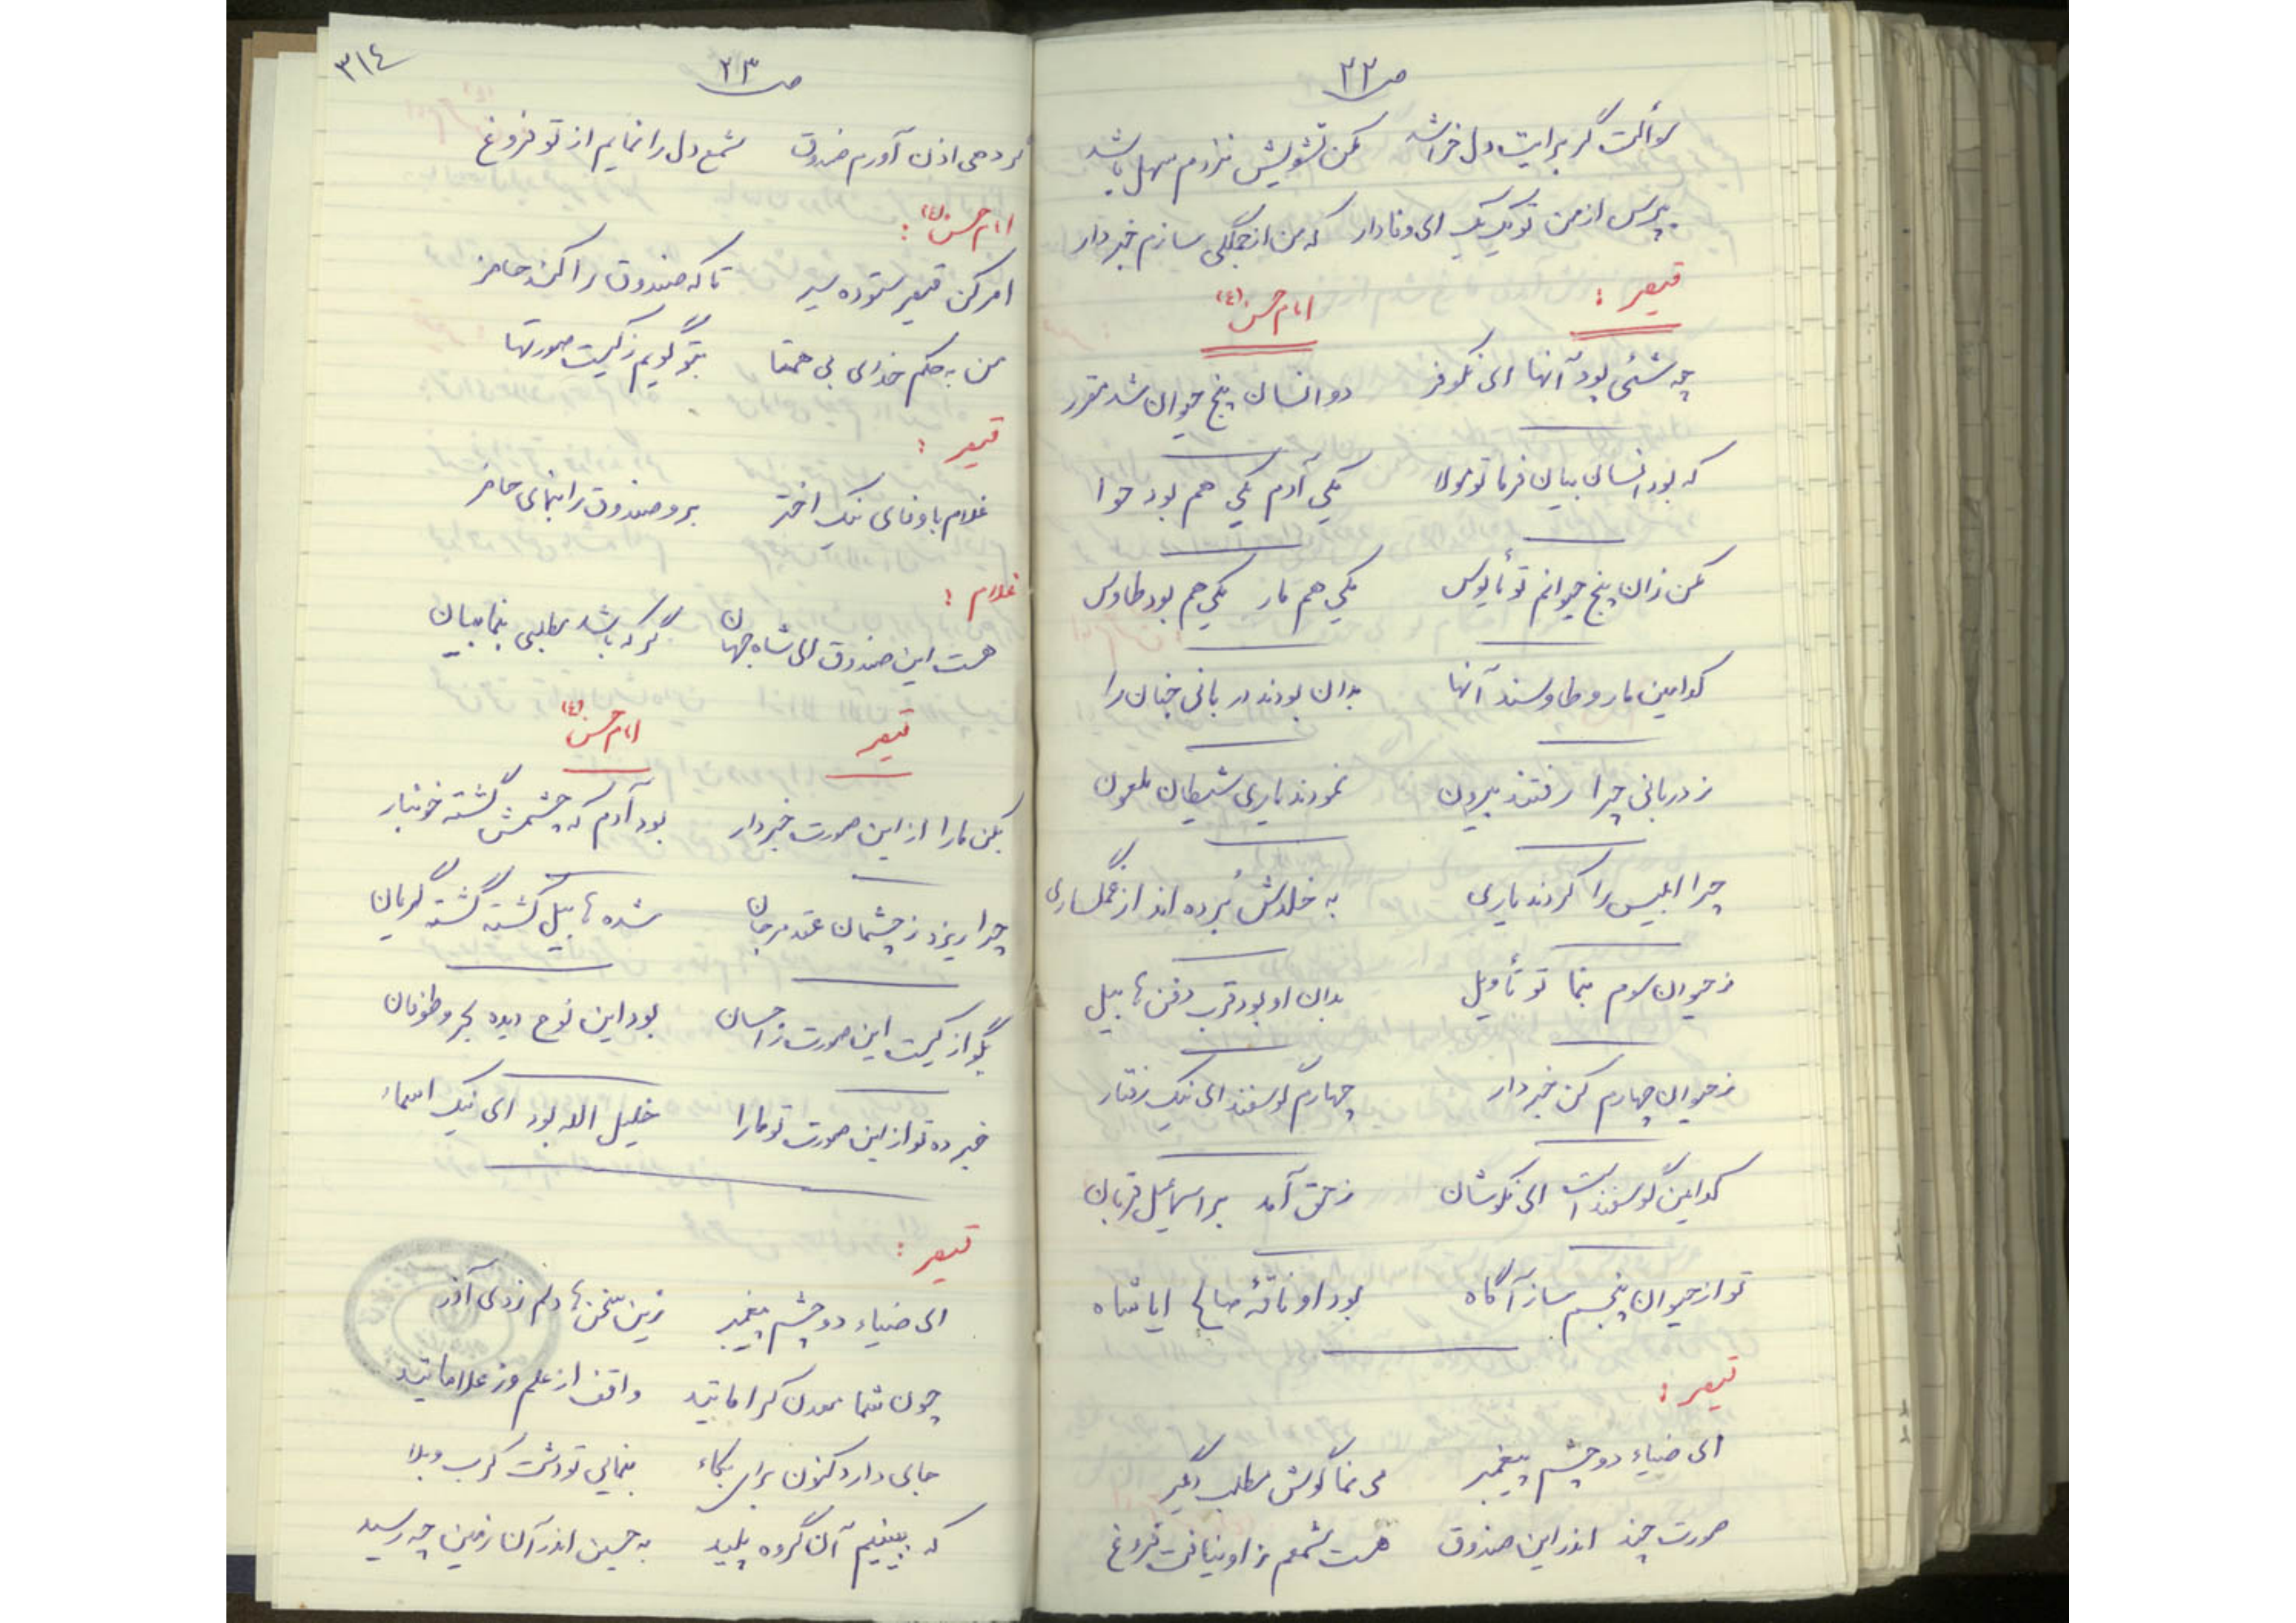 ص ۲۲
سؤالت گر برایت دل خراشد مکن تشویش نزدم سهل باشد
بپرس از من تو یک یک ای وفادار که من از جملگی سازم خبردار
قیصر : امام حسن (ع)
چه شئی بود آنها ای نکوفر دو انسان پنج حیوان شد مقرر
که بود انسان بیان فرما تو مولا یکی آدم یکی هم بود حوا
مکن زان پنج حیوانم تو مأیوس یکی هم مار یکی هم بود طاوس
کدامین مار و طاوسند آنها بدان بودند دربانی جنان را
ز دربانی چرا رفتند بیرون نمودند یاری شیطان ملعون
چرا ابلیس را کردند یاری به خلدش بُرده اند از غمگساری
ز حیوان سوم بنما تو تأویل بدان او بود قرب دفن هابیل
ز حیوان چهارم کن خبردار چهارم گوسفند ای نیک رفتار
کدامین گوسفند است ای نکوشان ز حق آمد بر اسماعیل قربان
تو از حیوان پنجم ساز آگاه بود او ناقهٔ صالح ایا شاه
قیصر :
ای ضیاء دو چشم پیغمبر می نما گوش مطلب دیگر
صورت چند اندر این صندوق هست شمعم ز او نیافت فروغ
۳۱٤
ص ۲۳
گر دهی اذن آورم صندوق شمع دل را نمایم از تو فروغ
امام حسن (ع) :
امر کن قیصر ستوده سیر تا که صندوق را کند حاضر
من به حکم خدای بی همتا بتو گویم ز کیست صورتها
قیصر :
غلام باوفای نیک اختر برو صندوق را بنمای حاضر
غلام :
هست این صندوق ای شاه جهان گر که باشد مطلبی بنما بیان
قیصر امام حسن (ع)
بکن مارا از این صورت خبردار بود آدم که چشمش گشته خونبار
چرا ریزد ز چشمان عقد مرجان شده هابیل کشته گشته گریان
بگو از کیست این صورت ز احسان بود این نوح دیده بحر و طوفان
خبر ده تو از این صورت تو مارا خلیل الله بود ای نیک اسماء
قیصر :
ای ضیاء دو چشم پیغمبر زین سخن ها دلم زدی آذر
چون شما معدن کراماتید واقف از علم وز علاماتید
جای دارد کنون برای بکاء بنمایی تو دشت کرب و بلا
که ببینیم آن گروه پلید به حسین اندر آن زمین چه رسید